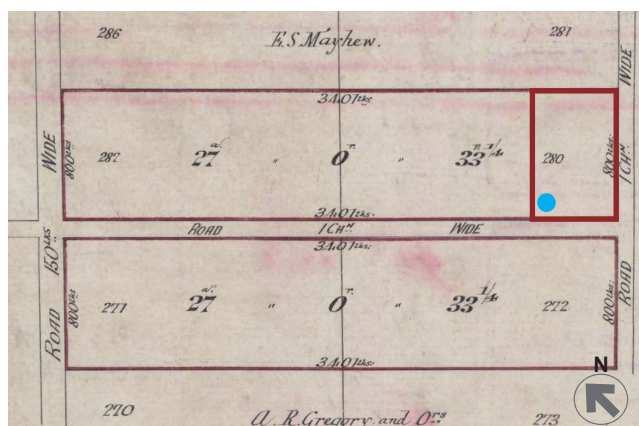 286
E. S. Mayhew.
281
WIDE
3401 lks
WIDE
800 lks
287
27 a. " 0 r. " 33 1/4 p.
280
800 lks
1 CHN
3401 lks.
ROAD 1 CHN WIDE
3401 lks.
ROAD 150 LKS
800 lks
271
27 a. " 0 r. " 33 1/4
272
800 lks
ROAD
3401 lks.
N
270
A. R. Gregory and Ors
273